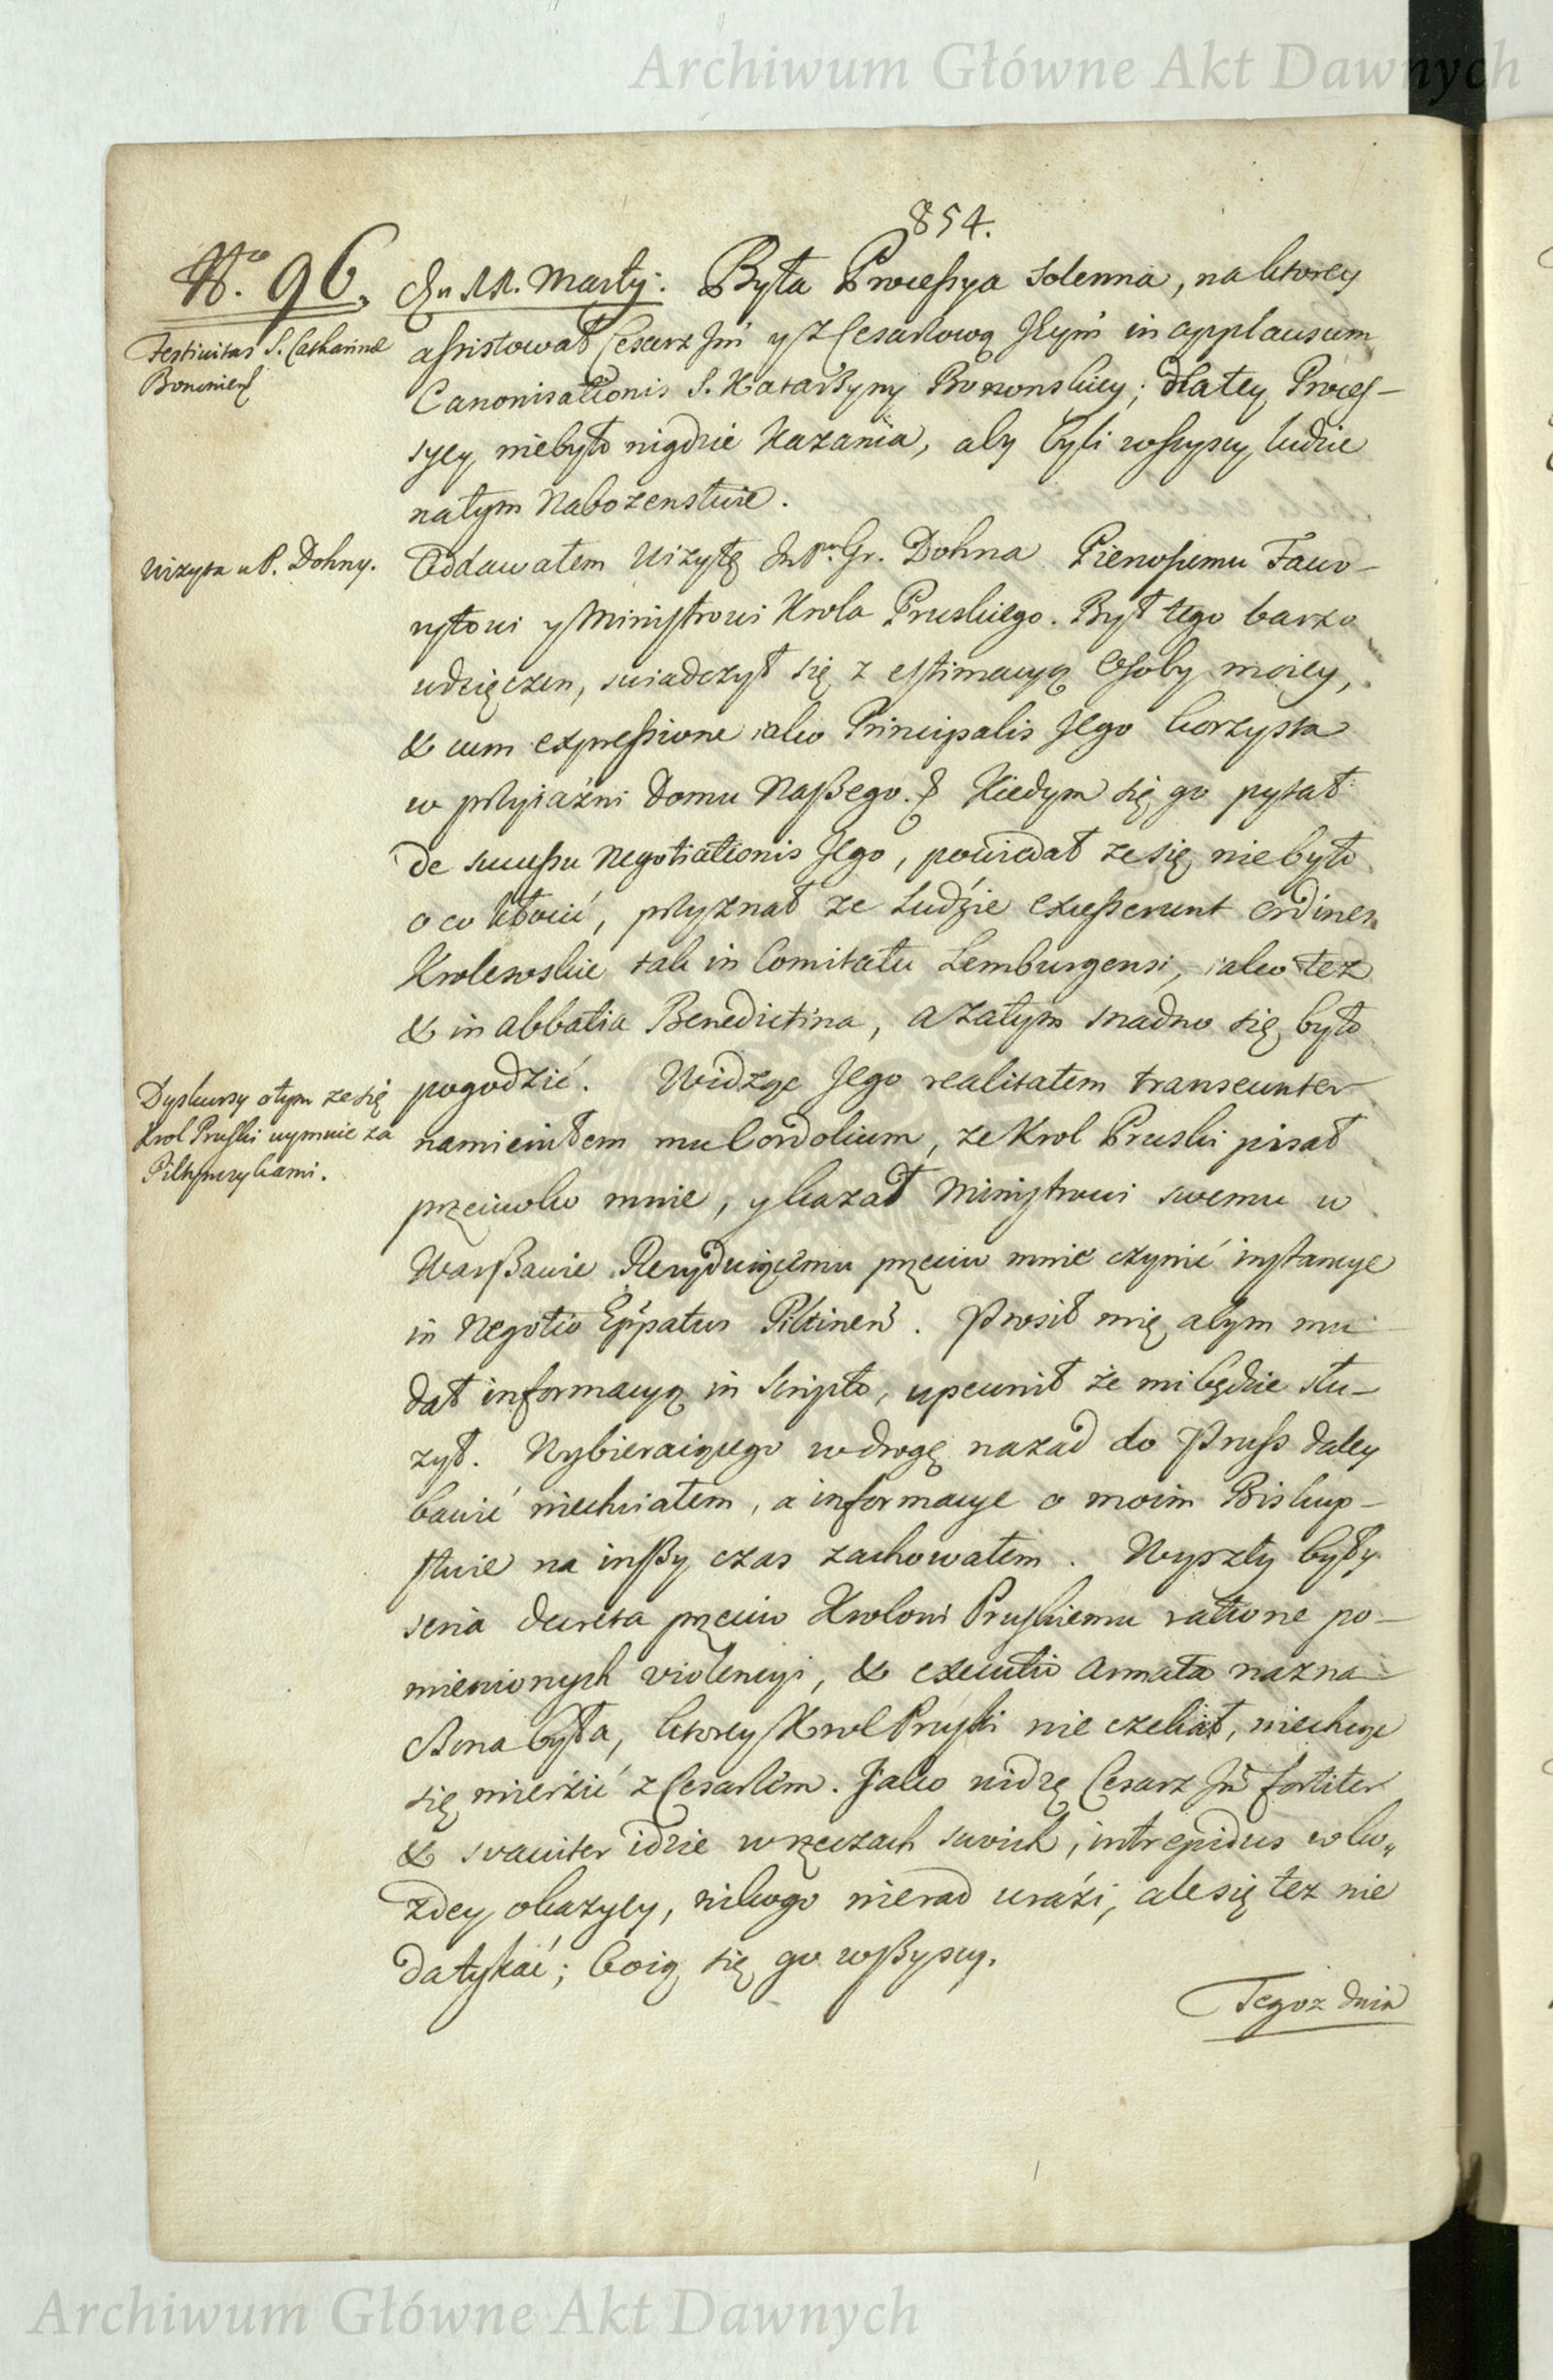 Archiwum Główne Akt Dawnych
854.
No. 96.
Dn 22. Martij. Była Processya solenna, na ktorey
Festivitas S. Catharinæ
Bononiens
assistował Cesarz Jm y z Cesarzową Jeym in applausum
Canonisationis S. Katarzyny Bononskiey; dla tey Proces-
syey niebyło nigdzie Kazania, aby byli wszyscy ludzie
natym Nabozenstwie.
Wizyta u P. Dohny.
Oddawałem Wizytę Gr. Dohna Pierwszemu Fawo-
rytowi y Ministrowi Krola Pruskiego. Był tego barzo
wdzięczen, swiadczył się z estimacyą Osoby moiey,
& cum expressione iako Principalis Jego korzysta
w przyiazni Domu Naszego. Kiedym się go pytał
de successu Negotiationis Jego, powiedał ze się niebyło
o co kłocić, przyznał ze Ludzie excesserunt ordines
Krolewskie tak in Comitatu Lemburgensi, iako tez
& in abbatia Benedictina, a zatym snadno się było
pogodzić. Widząc Jego realitatem transeunter
Dyskursy otym ze się
Krol Pruski uymuie za
Piltynczykami.
namieniłem mu Cordolium, ze Krol Pruski pisał
przeciwko mnie, y kazał Ministrowi swemu w
Warszawie Rezyduiącemu przeciw mnie czynić instancye
in Negotio Eppatus Piltinens. Prosił mię abym mu
dał informacyą in Scripto, upewnił że mi będzie słu-
zył. Wybieraiącego w drogę nazad do Pruss daley
bawić niechciałem, a informacye o moim Biskup-
stwie na inszy czas zachowałem. Wyszły były
seria decreta przeciw Krolowi Pruskiemu ratione po-
mienionych violencyi, & executio armata nazna-
czona była, ktorey Krol Pruski nie czekał, niechcąc
się mierzić z Cesarzem. Jako widzę Cesarz Jm fortiter
& suaviter idzie w rzeczach swoich, intrepidus w ka-
zdey okazyey, nikogo nierad urazi, ale się tez nie
da tykać; boią się go wszyscy.
Tegoz dnia
Archiwum Główne Akt Dawnych